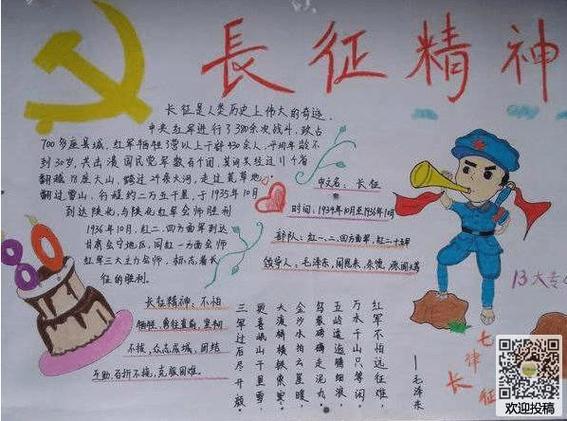 長征精神
长征是人类历史上伟大的奇迹,
中央红军进行了380余次战斗,攻占
700多座县城,红军牺牲了营以上干部430余人,平均年龄不
到30岁,共击溃国民党军数百个团,其间共经过11个省
翻越18座大山,跨过24条大河,走过荒草地,
翻过雪山,行程约二万五千里,于1935年10月
到达陕北,与陕北红军会师胜利
1936年10月,红二、四方面军到达
甘肃会宁地区,同红一方面会师
红军三大主力会师,标志着长
征的胜利。
中文名:长征
时间:1934年10月至1936年10月
部队:红一、二、四方面军,红二十五军
领导人:毛泽东,周恩来,朱德,
80
长征精神:不怕
牺牲,勇往直前,坚韧
不拔,众志成城,团结
互助,百折不挠,克服困难。
七律
长征
红军不怕远征难,
万水千山只等闲
五岭逶迤腾细浪
乌蒙磅礴走泥丸
金沙水拍云崖暖
大渡桥横铁索寒
更喜岷山千里雪
三军过后尽开颜。
——毛泽东
13大专
欢迎投稿